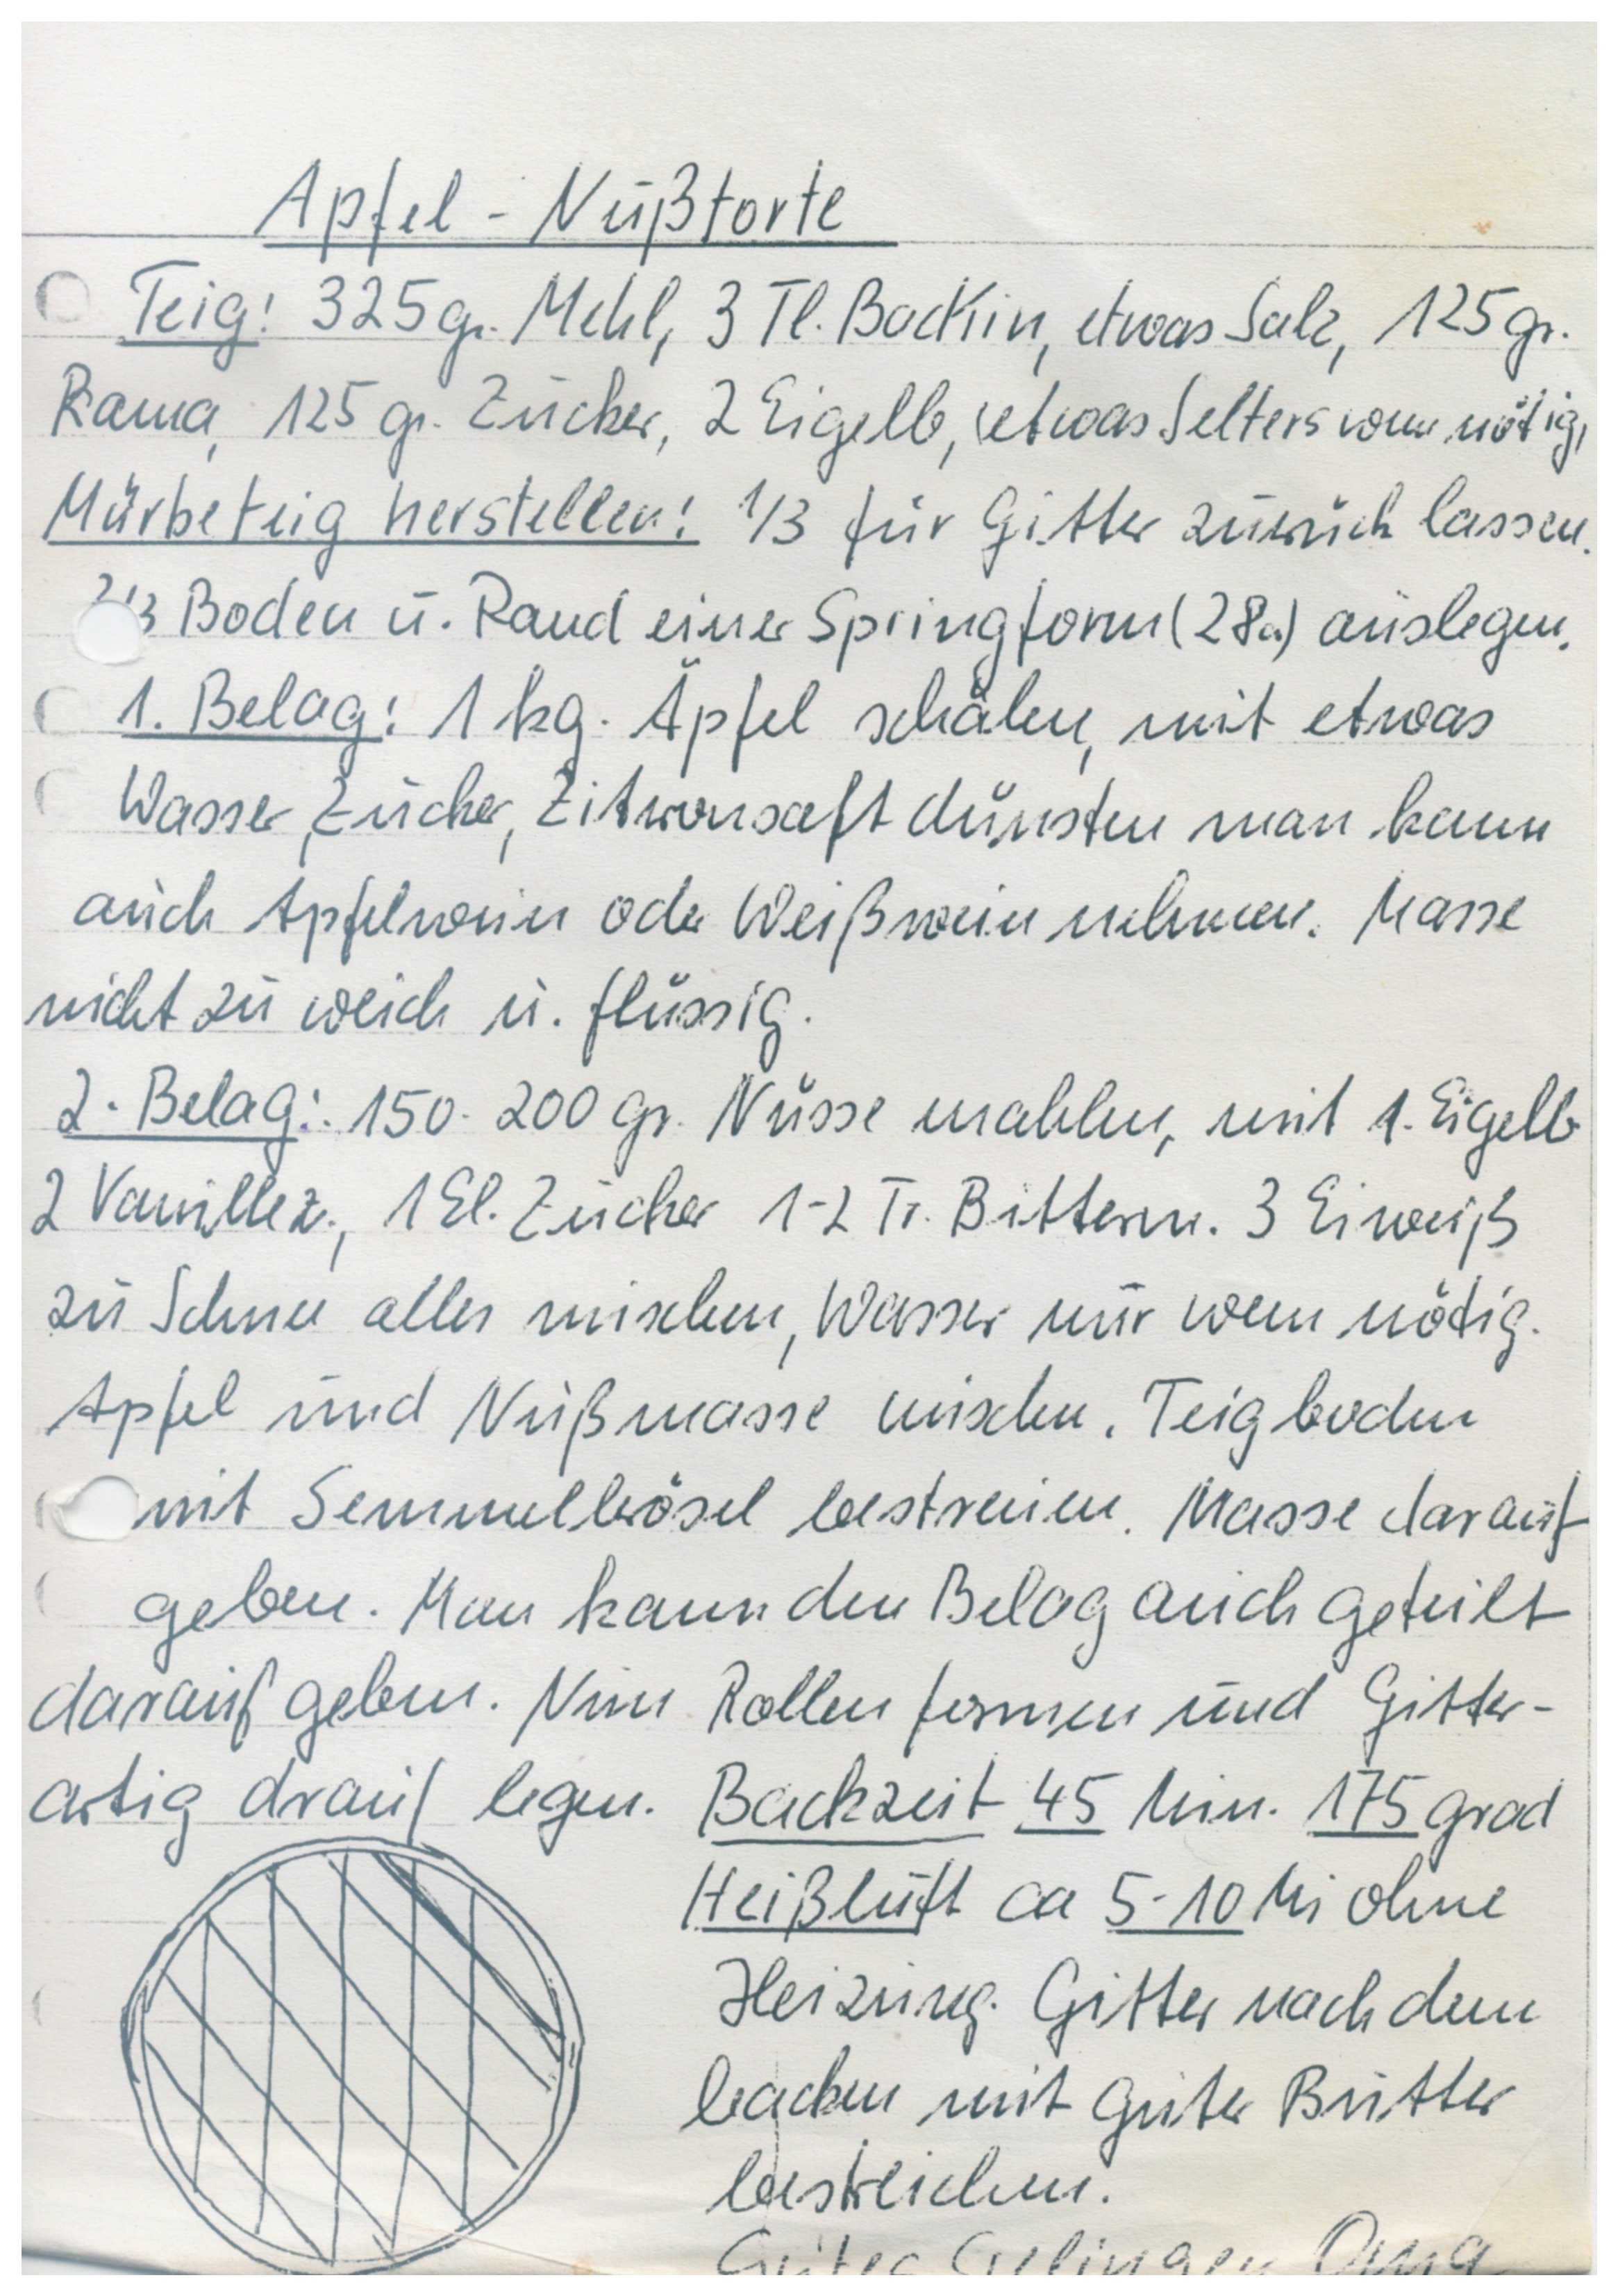 Apfel - Nußtorte
Teig: 325 gr. Mehl, 3 Tl. Backin, etwas Salz, 125 gr.
Rama, 125 gr. Zucker, 2 Eigelb, etwas Selters wenn nötig,
Mürbeteig herstellen! 1/3 für Gitter zurück lassen.
2/3 Boden u. Rand einer Springform (28) auslegen.
1. Belag: 1 kg. Äpfel schälen, mit etwas
Wasser, Zucker, Zitronensaft dünsten man kann
auch Apfelwein oder Weißwein nehmen. Masse
nicht zu weich u. flüssig.
2. Belag: 150-200 gr. Nüsse mahlen, mit 1. Eigelb
2 Vanillez., 1 El. Zucker 1-2 Tr. Bitterm. 3 Eiweiß
zu Schnee alles mischen, Wasser nur wenn nötig.
Apfel und Nußmasse mischen. Teigboden
mit Semmelbrösel bestreuen. Masse darauf
geben. Man kann den Belag auch geteilt
darauf geben. Nun Rollen formen und Gitter-
artig drauf legen. Backzeit 45 Min. 175 grad
Heißluft ca 5-10 Mi ohne
Heizung. Gitter nach dem
backen mit guter Butter
bestreichen.
Gutes Gelingen Oma